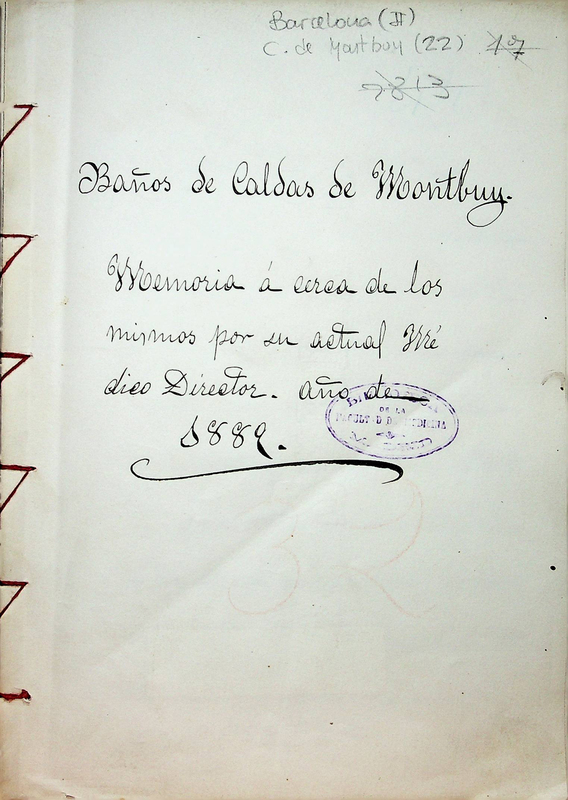 Barcelona (II)
C. de Montbuy (22) 17
2813
Baños de Caldas de Montbuy.
Memoria á cerca de los
mismos por su actual Mé
dico Director. año de
1882.
BIBLIOTECA
DE LA
FACULTAD DE MEDICINA
32